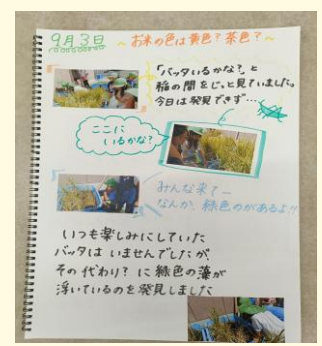 9月3日 ～お米の色は黄色？茶色？～
「バッタいるかな？」と
稲の間をじっと見ていました。
今日は発見できず…
ここに
いるかな？
みんな来てー
なんか、緑色のがあるよ!!
いつも楽しみにしていた
バッタはいませんでしたが、
その代わり？に緑色の藻が
浮いているのを発見しました